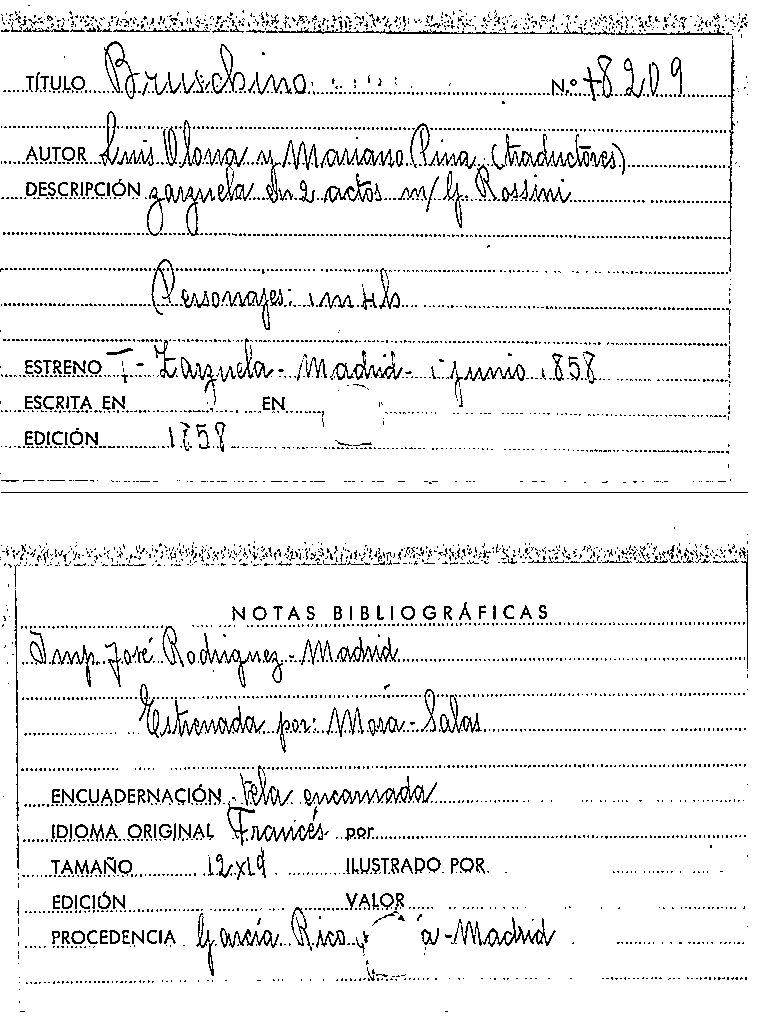 TÍTULO Bruschino N.º +8209
AUTOR Luis Olona y Mariano Pina (traductores)
DESCRIPCIÓN zarzuela en 2 actos m/ G. Rossini
Personajes:
ESTRENO T- Zarzuela - Madrid - 1- junio 1858
ESCRITA EN EN
EDICIÓN 1858
NOTAS BIBLIOGRÁFICAS
Imp. José Rodriguez - Madrid
Estrenada por: Mora - Salas
ENCUADERNACIÓN tela encarnada
IDIOMA ORIGINAL Francés por
TAMAÑO 12x19 ILUSTRADO POR
EDICIÓN VALOR
PROCEDENCIA García Rico y a - Madrid